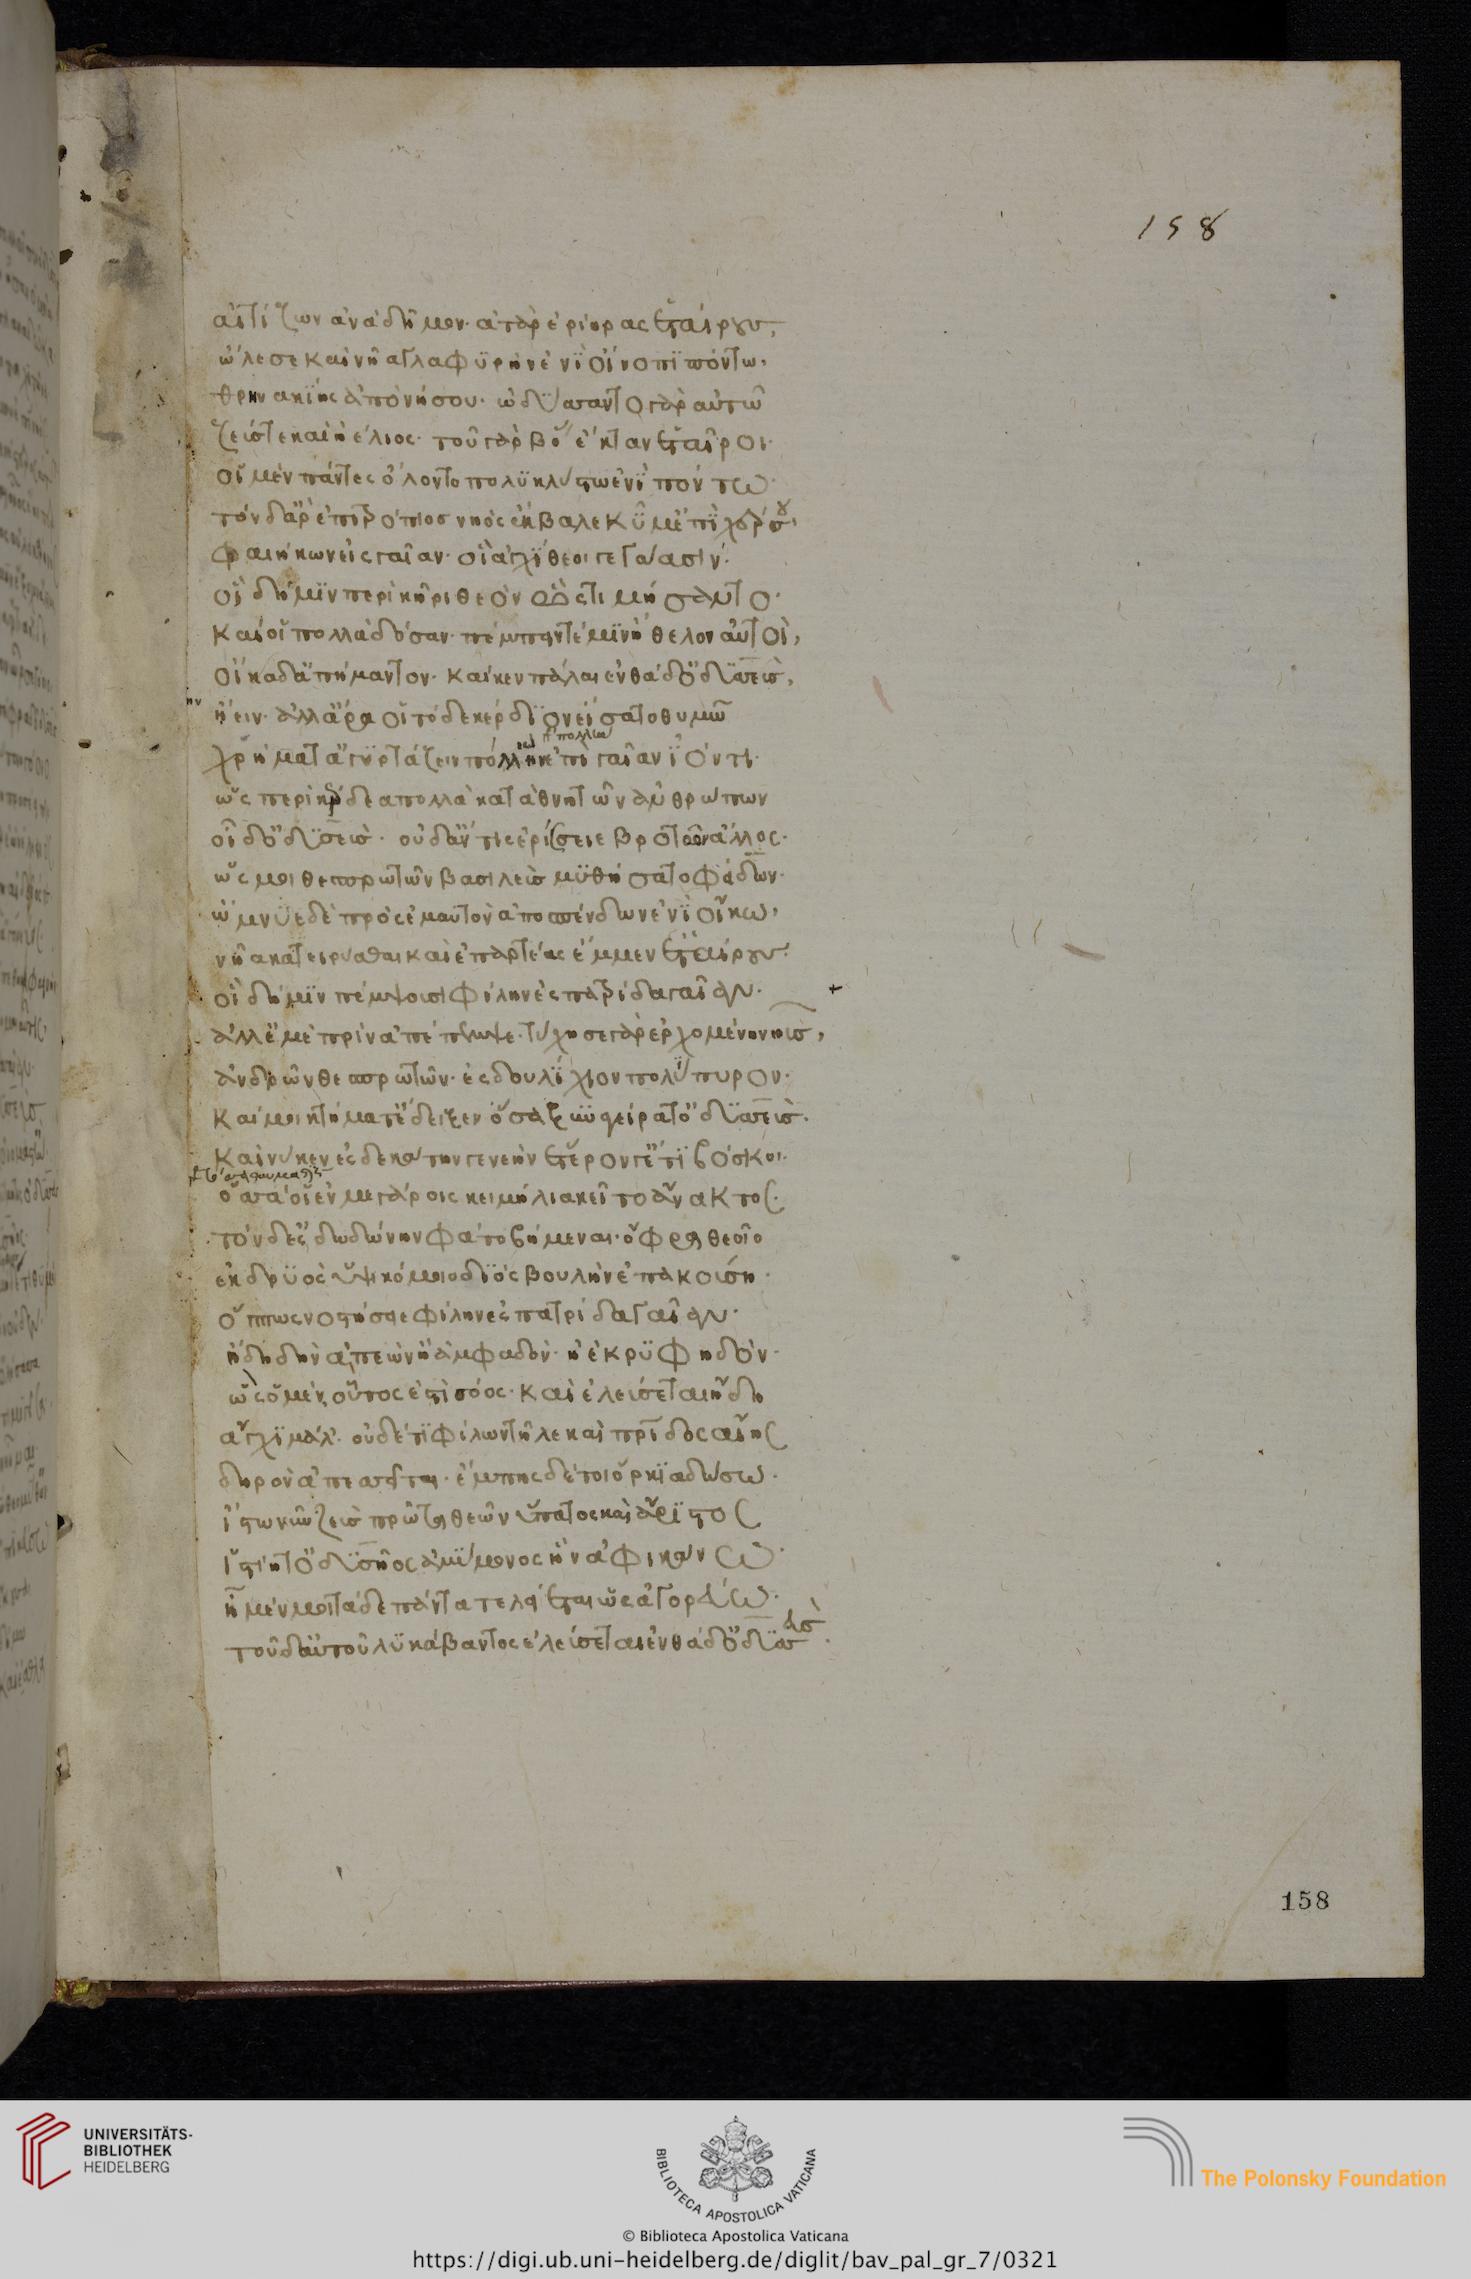 αἰτίζων ἀνὰ δῆμον· ἀτὰρ ἐρίηρας ἑταίρους,
ὤλεσε καὶ νῆα γλαφϋρὴν ἐνϊ οἴνοπϊ πόντω,
θρηνακϊης ἀπὸ νήσου· ὠδύσαντο γὰρ αὐτῶ
ζεύς τε καὶ ἠέλιος· τοῦ γὰρ βοῦς ἔκταν ἑταῖροι·
οἱ μὲν πάντες ὄλοντο πολϋκλύστω ἐνϊ πόντω·
τὸν δ' ἄρ' ἐπϊ τρόπιος νηὸς ἔκβαλε κῦμ' ἐπϊ χέρσου,
φαιήκων εἰς γαῖαν· οἳ ἀγχϊθεοι γεγάασιν·
οἳ δή μϊν περὶ κῆρι θεὸν ὣς ετιμήσαντο·
καί οἱ πολλὰ δόσαν· πέμπειν τέ μϊν ἤθελον αὐτοὶ,
οἴκαδ' ἀπήμαντον· καί κεν πάλαι ἐνθάδ' ὀδϋσσεὺς,
ἤειν· ἀλλ' ἄρα οἱ τόδε κέρδϊον εἴσατο θυμῶ
χρήματ' ἀγϋρτάζειν πολλὴν ἐπὶ γαῖαν ϊόντι·
ὣς περὶ κέρδεα πολλὰ καταθνητῶν ἀνθρώπων
οἶδ' ὀδϋσσεὺς· οὐδ' ἄν τις ἐρίσσειε βροτῶν ἄλλος·
ὥς μοι θεσπρωτῶν βασιλεὺς μϋθήσατο φείδων·
ὤμνϋε δὲ πρὸς ἐμαυτὸν ἀποσπένδων ἐνϊ οἴκω,
νῆα κατειρύσθαι καὶ ἐπαρτέας ἔμμεν ἑταίρους·
οἳ δή μϊν πέμψουσι φίλην ἐς πατρίδα γαῖαν·
ἀλλ' ἐμὲ πρὶν ἀπέπεμψε· τύχησε γὰρ ἐρχομένη νηῦς,
ἀνδρῶν θεσπρωτῶν· ἐς δουλϊχιον πολύπυρον·
καί μοι κτήματ' ἔδειξεν ὅσα ξυνϋαγείρατ' ὀδϋσσεὺς·
καί νύ κεν ἐς δεκάτην γενεὴν ἕτερον γ' ἔτϊ βόσκοι·
ὅσσα οἱ ἐν μεγάροις κειμήλια κεῖτο ἄνακτος·
τὸν δ' ἐς δωδώνην φάτο βήμεναι· ὄφρα θεοῖο
ἐκ δρϋὸς ὑψικόμοιο δϊὸς βουλὴν ἐπακούση·
ὅππως νοστήσειε φίλην ἐς πατρίδα γαῖαν·
ἤδη δὴν ἀπεὼν ἢ ἀμφαδὸν· ἠὲ κρϋφηδὸν·
ὣς ὁ μὲν οὗτος ἐστὶ σόος· καὶ ἐλεύσεται ἤδη
ἄγχϊ μάλ'· οὐδέ τϊ φίλων τῆλε καὶ πατρίδος αἴης
δηρὸν ἀπέσσεται· ἔμπης δέ τοι ὅρκϊα δώσω·
ἴστω νῦν ζεὺς πρῶτα θεῶν ὕπατος καὶ ἄρϊστος
ἱστίη τ' ὀδϋσῆος ἀμύμονος ἣν ἀφικάνω·
ἦ μέν μοι τάδε πάντα τελείεται ὡς ἀγορεύω·
τοῦδ' αὐτοῦ λϋκάβαντος ἐλεύσεται ἐνθάδ' ὀδϋσσεὺς·
158
158
UNIVERSITÄTS-
BIBLIOTHEK
HEIDELBERG
BIBLIOTECA APOSTOLICA VATICANA
The Polonsky Foundation
© Biblioteca Apostolica Vaticana
https://digi.ub.uni-heidelberg.de/diglit/bav_pal_gr_7/0321